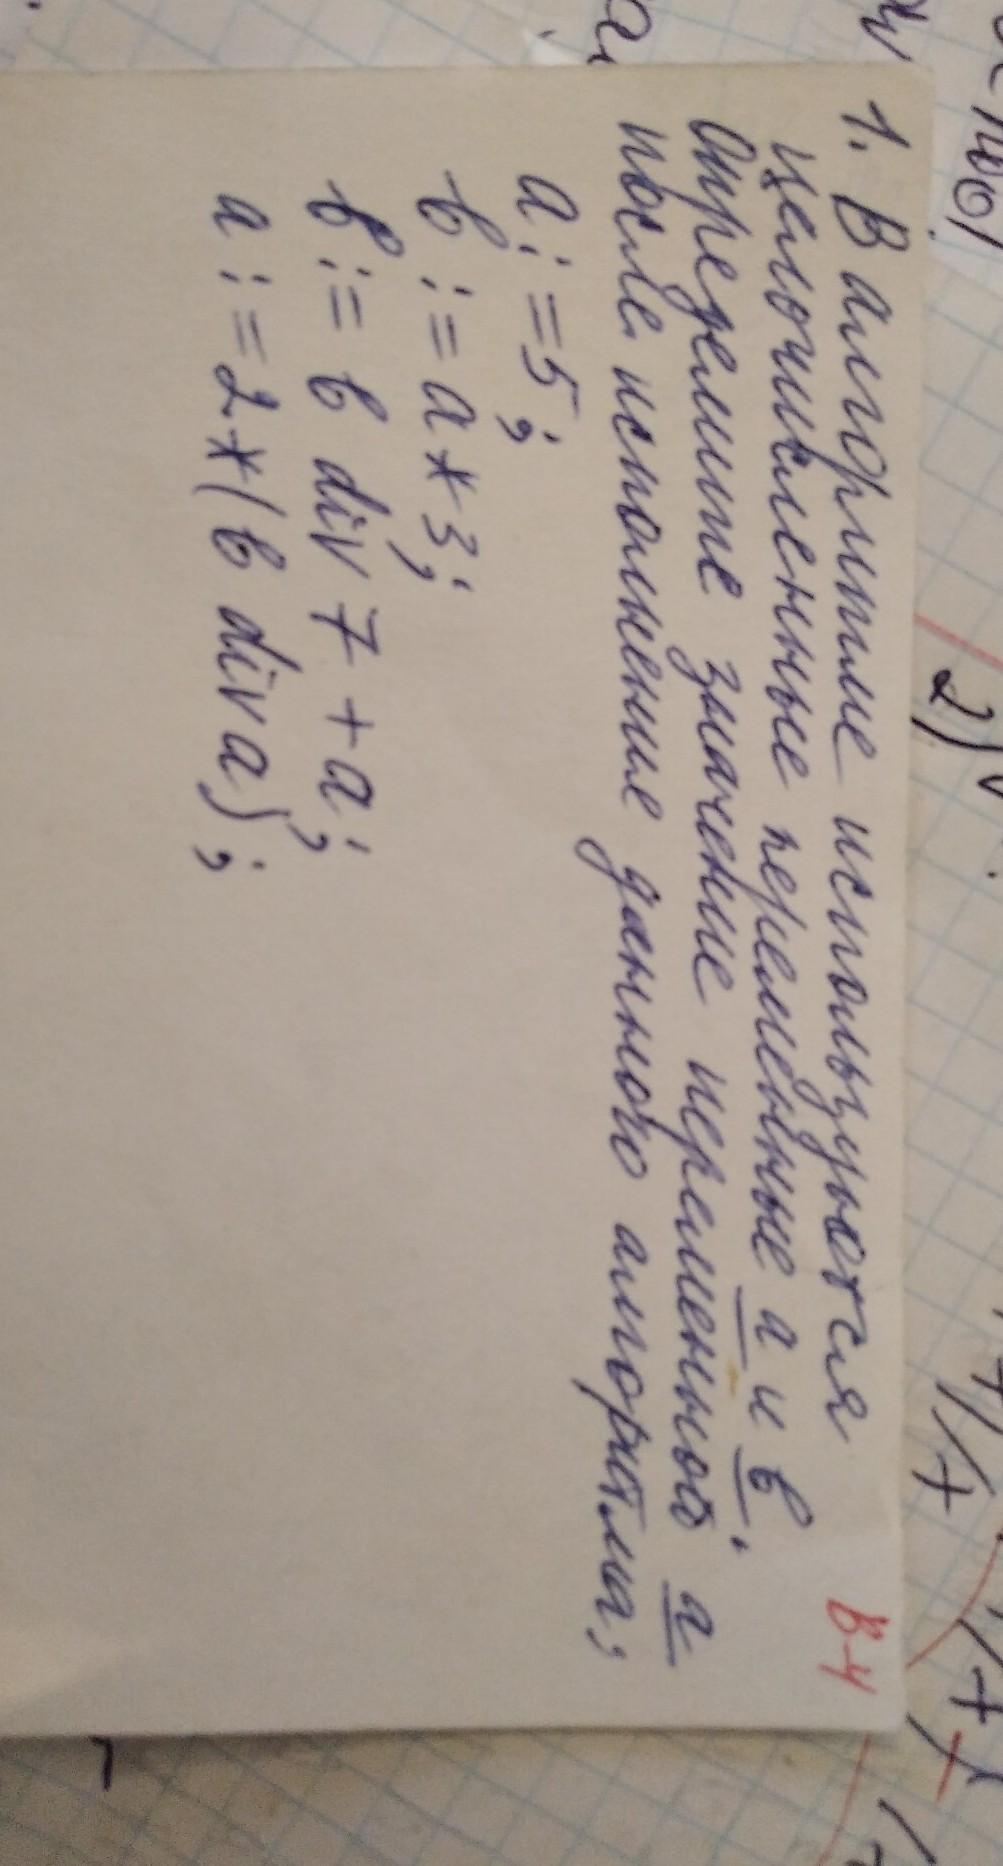 В-4
1. В алгоритме используются
целочисленные переменные а и в.
Определите значение переменной а
после исполнения данного алгоритма;
a:=5;
b:=a*3;
b:=b div 7+a;
a:=2*(b div a);
2)